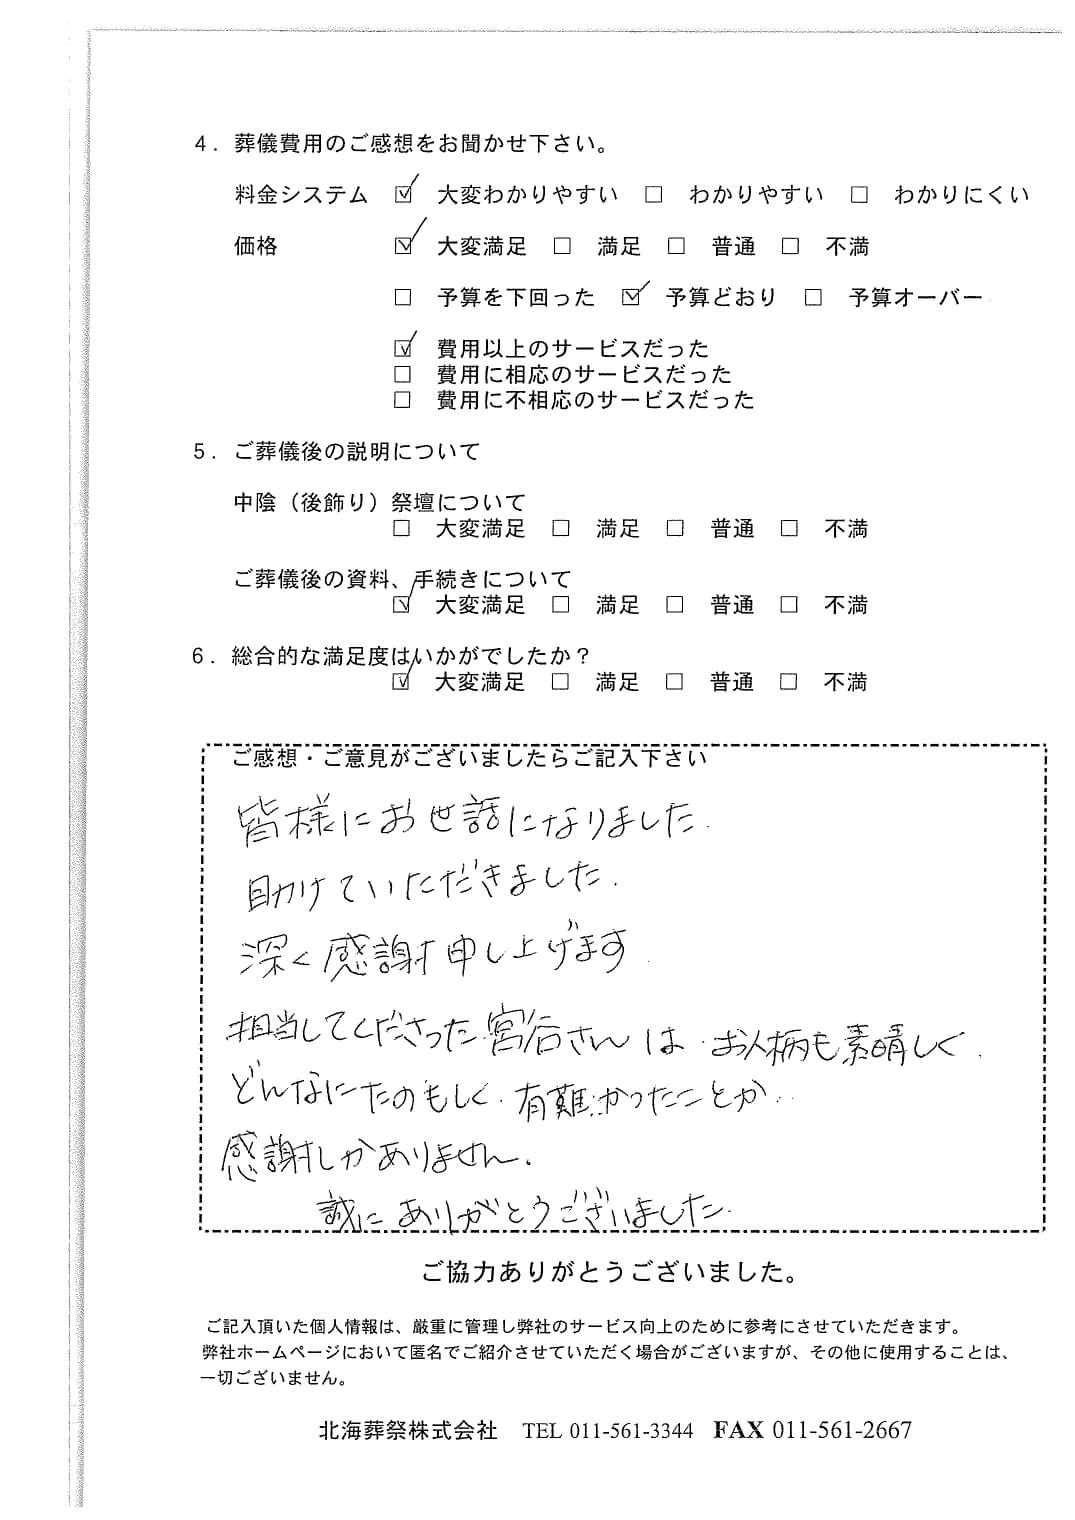 4．葬儀費用のご感想をお聞かせ下さい。
料金システム ☑ 大変わかりやすい □ わかりやすい □ わかりにくい
価格 ☑ 大変満足 □ 満足 □ 普通 □ 不満
□ 予算を下回った ☑ 予算どおり □ 予算オーバー
☑ 費用以上のサービスだった
□ 費用に相応のサービスだった
□ 費用に不相応のサービスだった
5．ご葬儀後の説明について
中陰（後飾り）祭壇について
□ 大変満足 □ 満足 □ 普通 □ 不満
ご葬儀後の資料、手続きについて
☑ 大変満足 □ 満足 □ 普通 □ 不満
6．総合的な満足度はいかがでしたか？
☑ 大変満足 □ 満足 □ 普通 □ 不満
ご感想・ご意見がございましたらご記入下さい
皆様にお世話になりました.
助けていただきました.
深く感謝申し上げます.
担当してくださった宮谷さんは お人柄も素晴しく.
どんなにたのもしく.有難かったことか..
感謝しかありません.
誠にありがとうございました.
ご協力ありがとうございました。
ご記入頂いた個人情報は、厳重に管理し弊社のサービス向上のために参考にさせていただきます。
弊社ホームページにおいて匿名でご紹介させていただく場合がございますが、その他に使用することは、
一切ございません。
北海葬祭株式会社 TEL 011-561-3344 FAX 011-561-2667